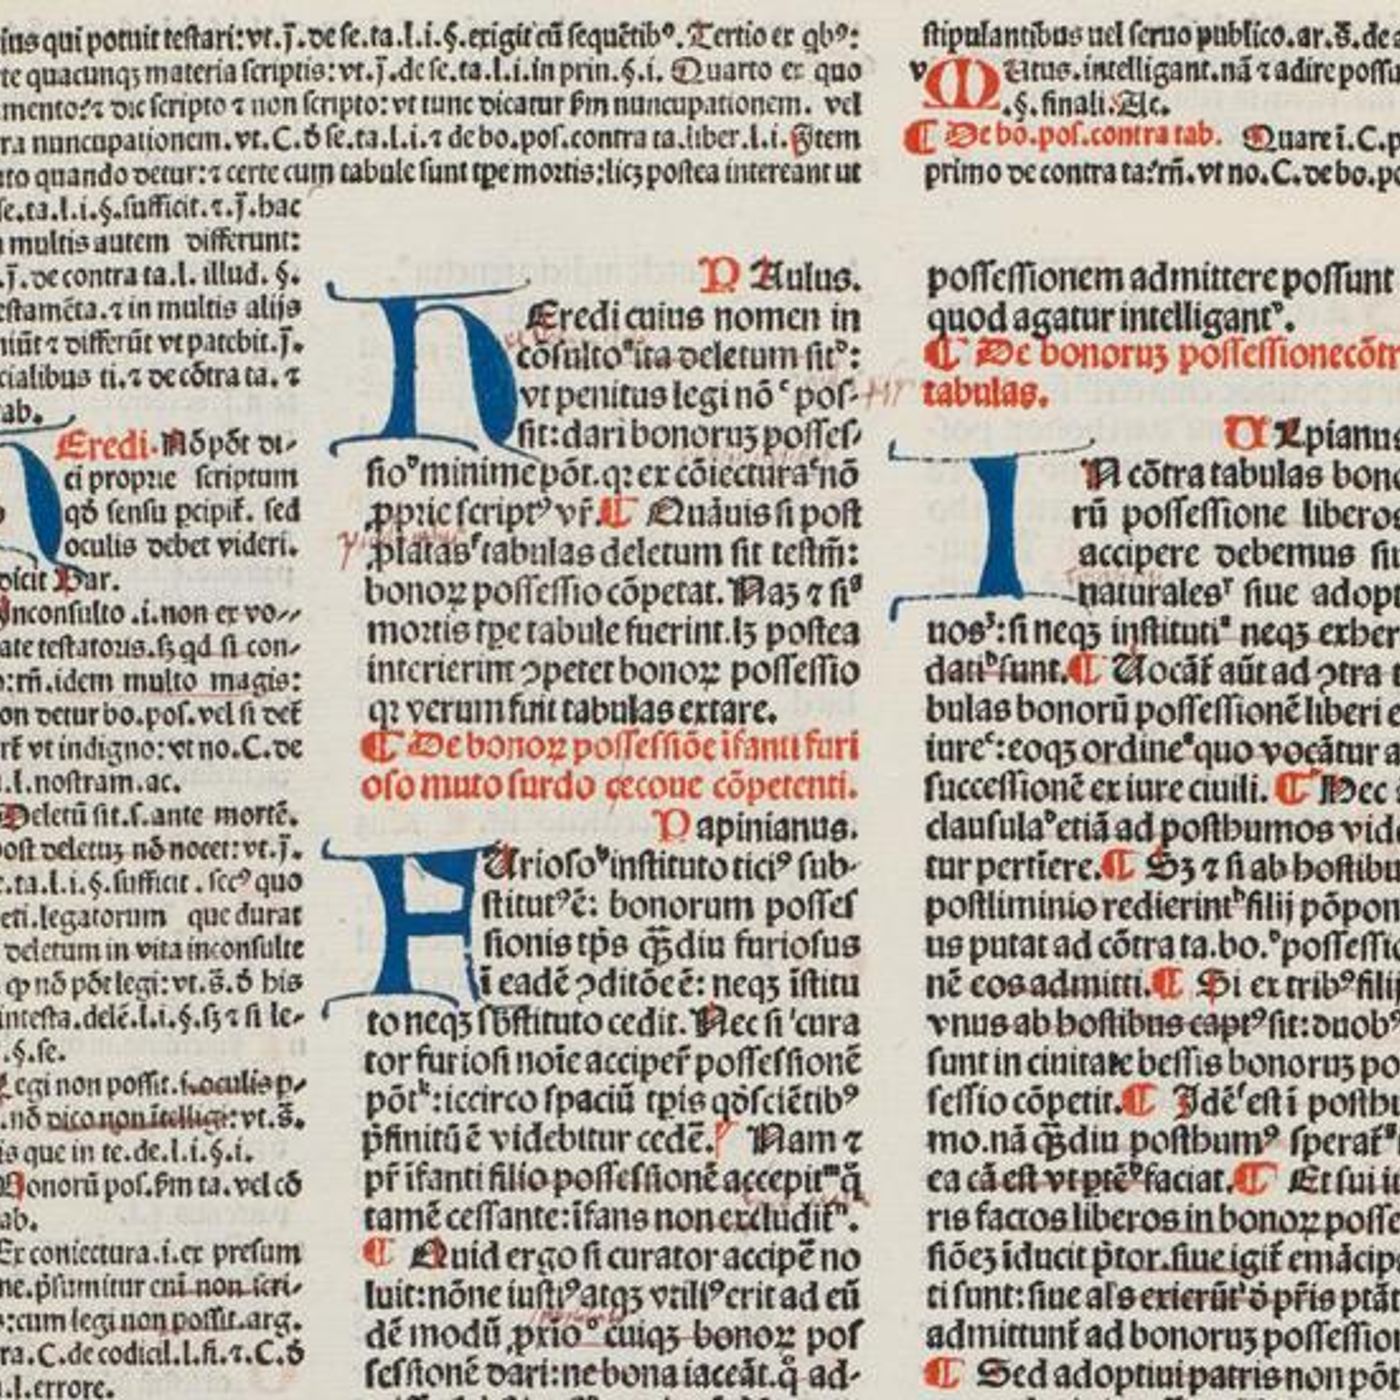 ius qui potuit testari: vt.j̄.de se.ta.l.i.§.exigit cū sequētibꝰ. Tertio ex qbꝰ:
te quacunqꝫ materia scriptis: vt.j̄.de se.ta.l.i.in prin.§.i. Quarto ex quo
mento: ⁊ dic scripto ⁊ non scripto: vt tunc dicatur ẜm nuncupationem. vel
ra nuncupationem. vt.C.ð se.ta.l.i.⁊ de bo.pos.contra ta.liber.l.i. Item
to quando detur: ⁊ certe cum tabule sunt tꝑe mortis: licꝫ postea intereant ut
se.ta.l.i.§.sufficit.⁊.j̄.hac
multis autem differunt:
.j̄.de contra ta.l. illud. §.
estamēta.⁊ in multis alijs
niūt ⁊ differūt vt patebit.j̄.
cialibus ti.⁊ de cōtra ta. ⁊
ab.
Eredi. Nō pōt di-
ci proprie scriptum
qð sensu ꝑcipit̃. sed
oculis debet videri.
dicit Par.
Inconsulto .i.non ex vo-
ate testatoris.sꝫ qd si con-
:rñ.idem multo magis:
on detur bo.pos.vel si det̃
vt indigno: vt no.C.de
.l.nostram.ac.
Deletū sit.s.ante mortē.
ost deletuꝫ nō nocet: vt.j̄.
.ta.l.i.§.sufficit . secꝰ quo
eti.legatorum que durat
deletum in vita inconsulte
ꝙ nō pōt legi: vt.s̄.ð his
intesta.delē.l.i.§.sꝫ ⁊ si le-
.§.se.
egi non possit.i.oculis p-
.nō dico non ītelligi: vt.s̄.
is que in te.de.l.i.§.i.
Bonorū pos.ẜm ta.vel cō
ab.
Ex coniectura.i.ex presum
ne.p̄sumitur eni non scri-
:cum legi non possit.arg.
ra.C.de codicil.l.fi.⁊.C.ð
.l.errore.
Paulus.
HEredi cuius nomen in
cōsulto ita deletum sit:
vt penitus legi nō pos-
sit: dari bonoruꝫ posses-
sio minime pōt. qꝛ ex cōiectura nō
ꝓprie scriptꝰ vr̃. ¶ Quāuis si post
ꝓlatas tabulas deletum sit testm̄:
bonoꝝ possessio cōpetat. Naꝫ ⁊ si
mortis tꝑe tabule fuerint. lꝫ postea
interierint ꝯpetet bonoꝝ possessio
qꝛ verum fuit tabulas extare.
¶ De bonoꝝ possessiōe īfanti furi
oso muto surdo cecoue cōpetenti.
Papinianus.
FUrioso instituto ticiꝰ sub-
stitutꝰ ē: bonorum posses
sionis tp̄s q̄ꝫdiu furiosus
ī eadē ꝯditōe ē: neqꝫ īstitu
to neqꝫ sb̄stituto cedit. Nec si cura
tor furiosi noīe acciper̃ possessionē
pōt: iccirco spaciū tꝑis qð sciētibꝰ
p̄finitū ē videbitur cedē. Nam ⁊
pr̄ īfanti filio possessionē accepit q̄
tamē cessante: īfans non excludit̃.
¶ Quid ergo si curator accipē no
luit: nōne iustiꝰ atqꝫ vtiliꝰ erit ad eū
dē modū ꝓxīo cuiqꝫ bonoꝝ pos
sessionē dari: ne bona iaceāt. q̊ ad-
stipulantibus uel seruo publico.ar.s̄.de a
MUtus.intelligant.nā ⁊ adire possu
.§.finali.Ac.
¶ De bo.pos.contra tab. Quare ī.C.p
primo de contra ta: rñ.vt no.C.de bo.po
possessionem admittere possunt
quod agatur intelligant.
¶ De bonoruꝫ possessione cōtr
tabulas.
Ulpianus
IN cōtra tabulas bono
rū possessione liberos
accipere debemus siu
naturales siue adopt
uos: si neqꝫ instituti neqꝫ exher
dati sunt. ¶ Uocāt̃ aūt ad ꝯtra t
bulas bonorū possessionē liberi e
iure: eoqꝫ ordine quo vocātur a
successionē ex iure ciuili. ¶ Hec
clausula etiā ad posthumos vide
tur pertīere. ¶ Sꝫ ⁊ si ab hostibu
postliminio redierint filij pōpon
us putat ad cōtra ta.bo. possessio
nē eos admitti. ¶ Si ex tribꝰ filij
vnus ab hostibus captꝰ sit: duobꝰ
sunt in ciuitate bessis bonoruꝫ po
sessio cōpetit. ¶ Idē est ī posthu
mo. nā q̄ꝫdiu posthumꝰ sperat̃
ea cā est vt ptē faciat. ¶ Et sui iu
ris factos liberos in bonoꝝ posse
siōeꝫ īducit p̄tor. siue igit̃ emācip
ti sunt: siue als exierūt ð pr̄is ptāt
admittunt̃ ad bonoruꝫ possession
¶ Sed adoptiui patris non pō